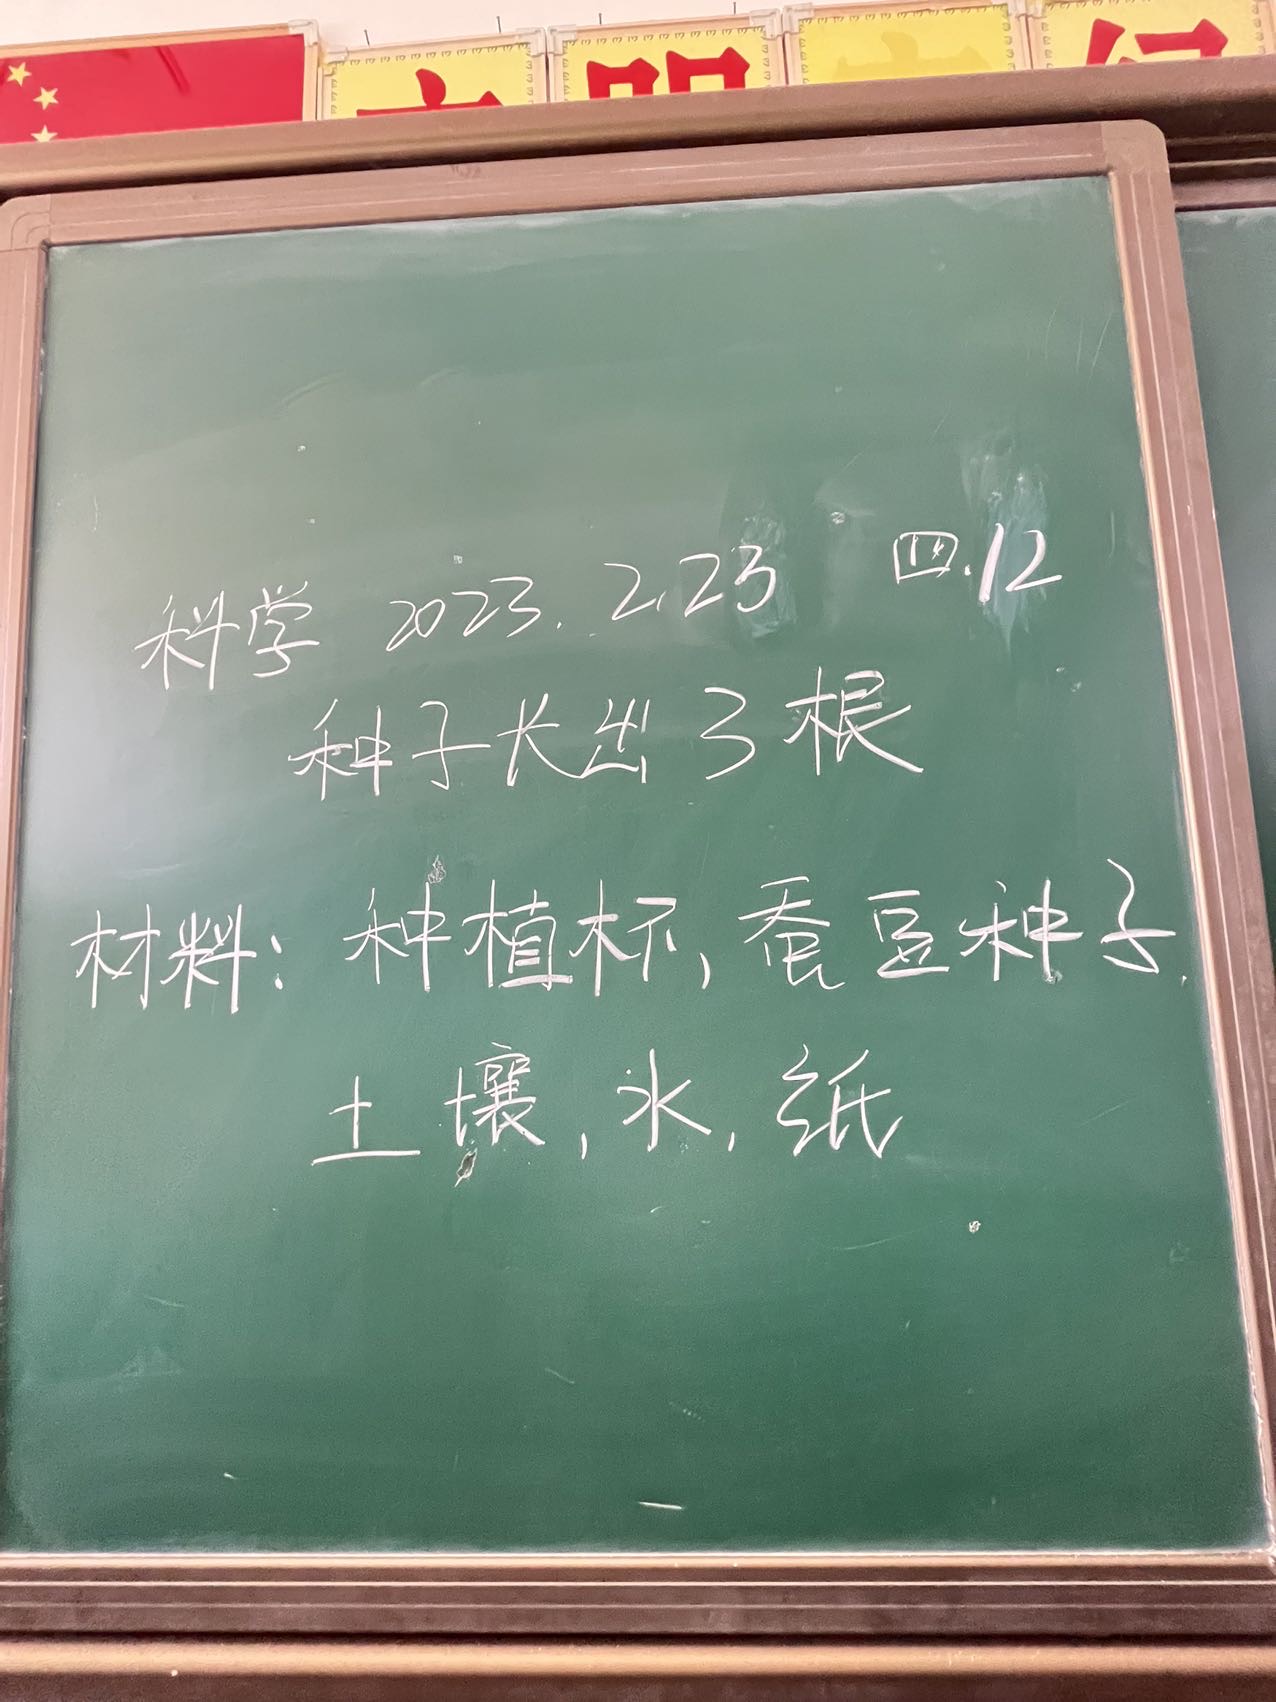 文明
科学 2023.2.23 四.12
种子长出了根
材料：种植杯，蚕豆种子，
土壤，水，纸